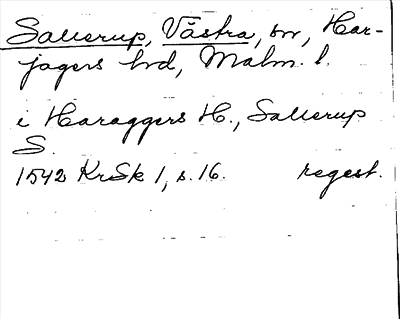 Sallerup, Västra, sn, Har-
jagers hd, Malm. l.
i Haraggers H., Sallerup
S.
1542 KrSk 1, s. 16. regest.